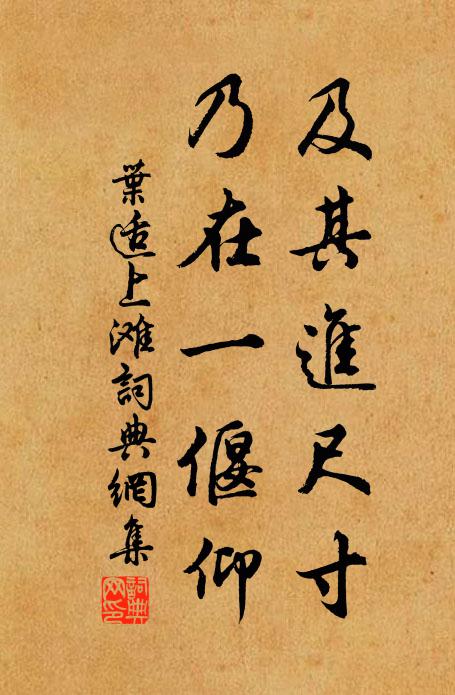 及其進尺寸
乃在一偃仰
葉适上滩詞典網集
詞典网印